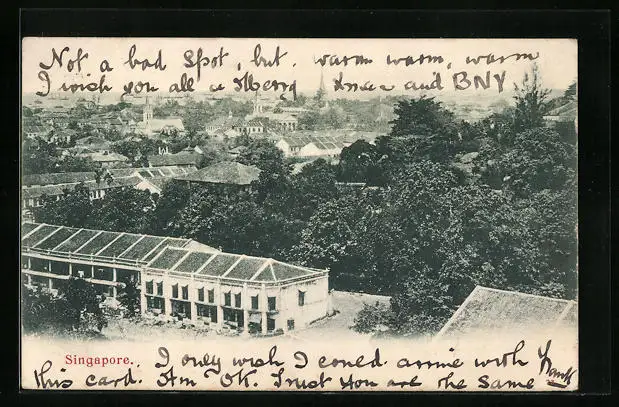 Not a bad spot, but. warm warm, warm
I wish you all a Merry Xmas and BNY
Singapore.
I only wish I could arrive with
this card. Am OK. Trust you are the same